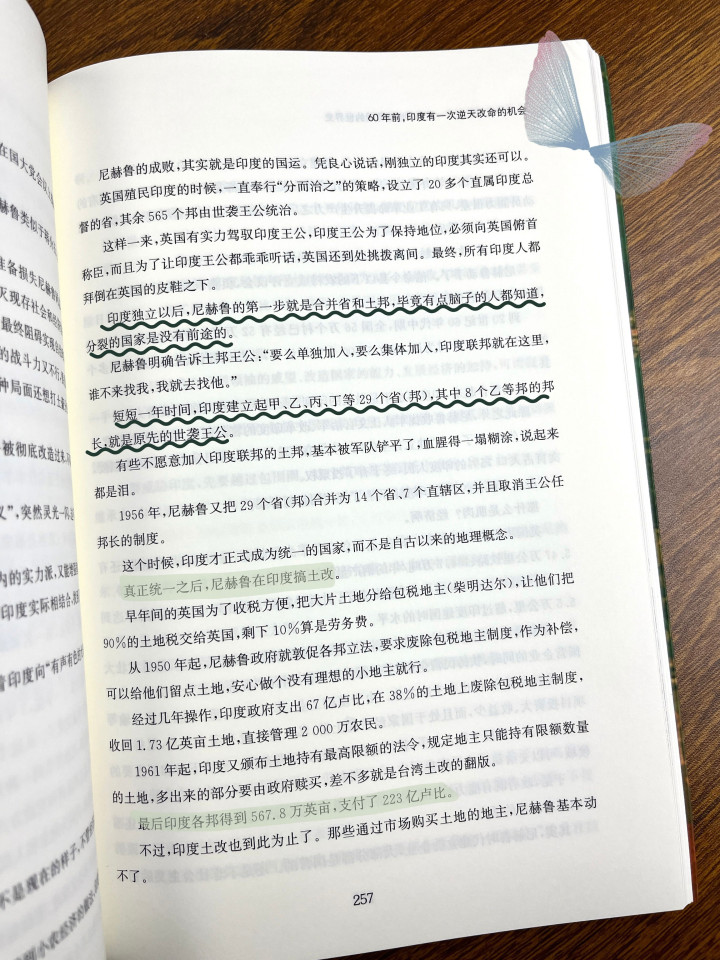 60年前,印度有一次逆天改命的机会
尼赫鲁的成败,其实就是印度的国运。凭良心说话,刚独立的印度其实还可以。
英国殖民印度的时候,一直奉行“分而治之”的策略,设立了20多个直属印度总
督的省,其余565个邦由世袭王公统治。
这样一来,英国有实力驾驭印度王公,印度王公为了保持地位,必须向英国俯首
称臣,而且为了让印度王公都乖乖听话,英国还到处挑拨离间。最终,所有印度人都
拜倒在英国的皮鞋之下。
印度独立以后,尼赫鲁的第一步就是合并省和土邦,毕竟有点脑子的人都知道,
分裂的国家是没有前途的。
尼赫鲁明确告诉土邦王公:“要么单独加入,要么集体加入,印度联邦就在这里,
谁不来找我,我就去找他。”
短短一年时间,印度建立起甲、乙、丙、丁等29个省(邦),其中8个乙等邦的邦
长,就是原先的世袭王公。
有些不愿意加入印度联邦的土邦,基本被军队铲平了,血腥得一塌糊涂,说起来
都是泪。
1956年,尼赫鲁又把29个省(邦)合并为14个省、7个直辖区,并且取消王公任
邦长的制度。
这个时候,印度才正式成为统一的国家,而不是自古以来的地理概念。
真正统一之后,尼赫鲁在印度搞土改。
早年间的英国为了收税方便,把大片土地分给包税地主(柴明达尔),让他们把
90%的土地税交给英国,剩下10%算是劳务费。
从1950年起,尼赫鲁政府就敦促各邦立法,要求废除包税地主制度,作为补偿,
可以给他们留点土地,安心做个没有理想的小地主就行。
经过几年操作,印度政府支出67亿卢比,在38%的土地上废除包税地主制度,
收回1.73亿英亩土地,直接管理2 000万农民。
1961年起,印度又颁布土地持有最高限额的法令,规定地主只能持有限额数量
的土地,多出来的部分要由政府赎买,差不多就是台湾土改的翻版。
最后印度各邦得到567.8万英亩,支付了223亿卢比。
不过,印度土改也到此为止了。那些通过市场购买土地的地主,尼赫鲁基本动
不了。
257